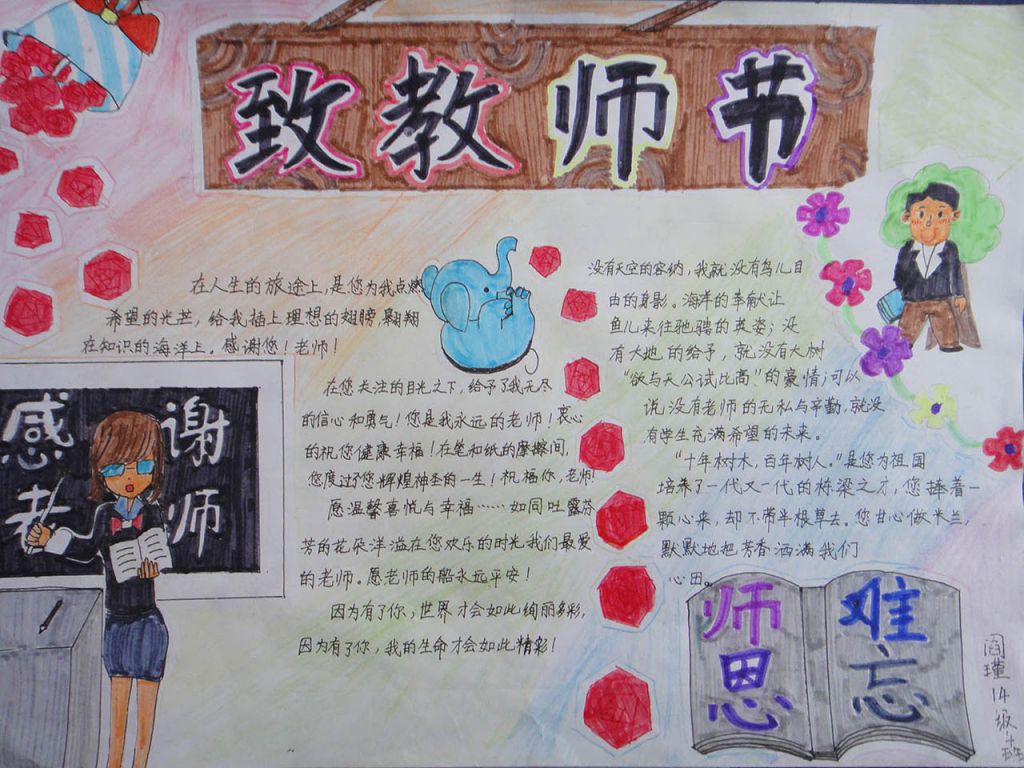 致教师节
在人生的旅途上，是您为我点燃
希望的光芒，给我插上理想的翅膀，翱翔
在知识的海洋上。感谢您！老师！
在您关注的目光之下，给予了我无尽
的信心和勇气！您是我永远的老师！衷心
的祝您健康幸福！在笔和纸的摩擦间，
您度过了您辉煌神圣的一生！祝福你，老师！
愿温馨喜悦与幸福……如同吐露芬
芳的花朵洋溢在您欢乐的时光我们最爱
的老师。愿老师的船永远平安！
因为有了你，世界才会如此绚丽多彩，
因为有了你，我的生命才会如此精彩！
没有天空的容纳，我就没有鸟儿自
由的身影。海洋的奉献让
鱼儿来往驰骋的英姿；没
有大地的给予，就没有大树
“欲与天公试比高”的豪情；可以
说没有老师的无私与辛勤，就没
有学生充满希望的未来。
“十年树木，百年树人。”是您为祖国
培养了一代又一代的栋梁之才，您捧着一
颗心来，却不带半根草去。您甘心做米兰，
默默地把芳香洒满我们
心田。
感谢
老师
师恩
难忘
阎瑾14级十班